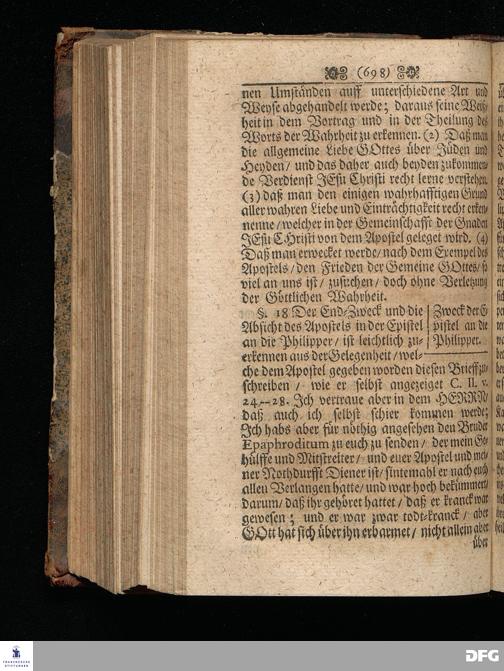 (698)
nen Umständen auff unterschiedene Art und
Weyse abgehandelt werde; daraus seine Weiß-
heit in dem Vortrag und in der Theilung des
Worts der Wahrheit zu erkennen. (2) Daß man
die allgemeine Liebe GOttes über Jüden und
Heyden / und das daher auch beyden zukommen-
de Verdienst JEsu Christi recht lerne verstehen.
(3) daß man den einigen wahrhafftigen Grund
aller wahren Liebe und Einträchtigkeit recht erken-
nenne / welcher in der Gemeinschafft der Gnaden
JEsu CHristi von dem Apostel geleget wird. (4)
Daß man erwecket werde / nach dem Exempel des
Apostels / den Frieden der Gemeine GOttes / so
viel an uns ist / zusuchen / doch ohne Verletzung
der Göttlichen Wahrheit.
§. 18 Der End-Zweck und die
Absicht des Apostels in der Epistel
an die Philipper / ist leichtlich zu-
erkennen aus der Gelegenheit / wel-
Zweck der E-
pistel an die
Philipper.
che dem Apostel gegeben worden diesen Brieff zu-
schreiben / wie er selbst angezeiget C. II. v.
24.--28. Ich vertraue aber in dem HERRN /
daß auch ich selbst schier kommen werde;
Ich habs aber für nöthig angesehen den Bruder
Epaphroditum zu euch zu senden / der mein Ge-
hülffe und Mitstreiter / und euer Apostel und mei-
ner Nothdurfft Diener ist / sintemahl er nach euch
allen Verlangen hatte / und war hoch bekümmert /
darum / daß ihr gehöret hattet / daß er kranck war
gewesen; und er war zwar todt-kranck / aber
GOtt hat sich über ihn erbarmet / nicht allein aber
über
FRANCKESCHE
STIFTUNGEN
DFG